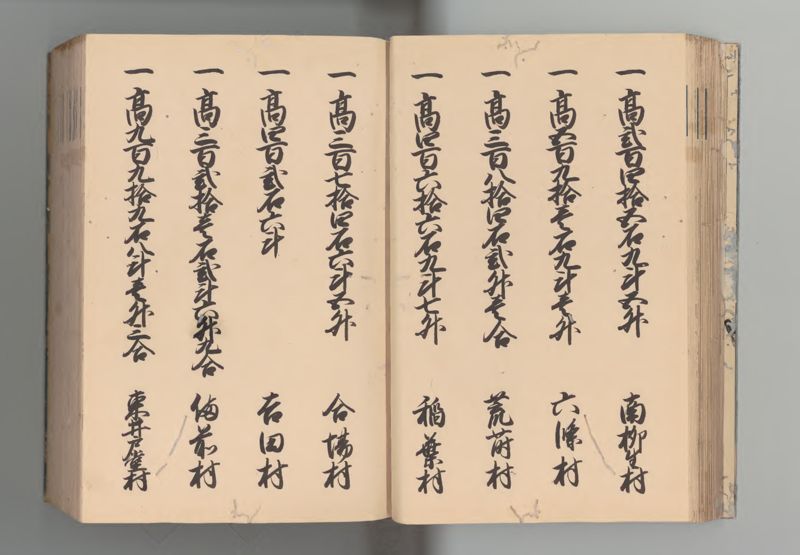 一 高弐百四拾五石九斗五升 南柳生村
一 高五百九拾壱石九斗壱升 六條村
一 高三百八拾四石弐升壱合 荒蒔村
一 高四百六拾六石九斗七升 稲葉村
一 高三百七拾四石六斗五升 合場村
一 高四百弐石六斗 吉田村
一 高三百弐拾壱石弐斗六升九合 備前村
一 高九百九拾九石八斗壱升三合 東井戸堂村